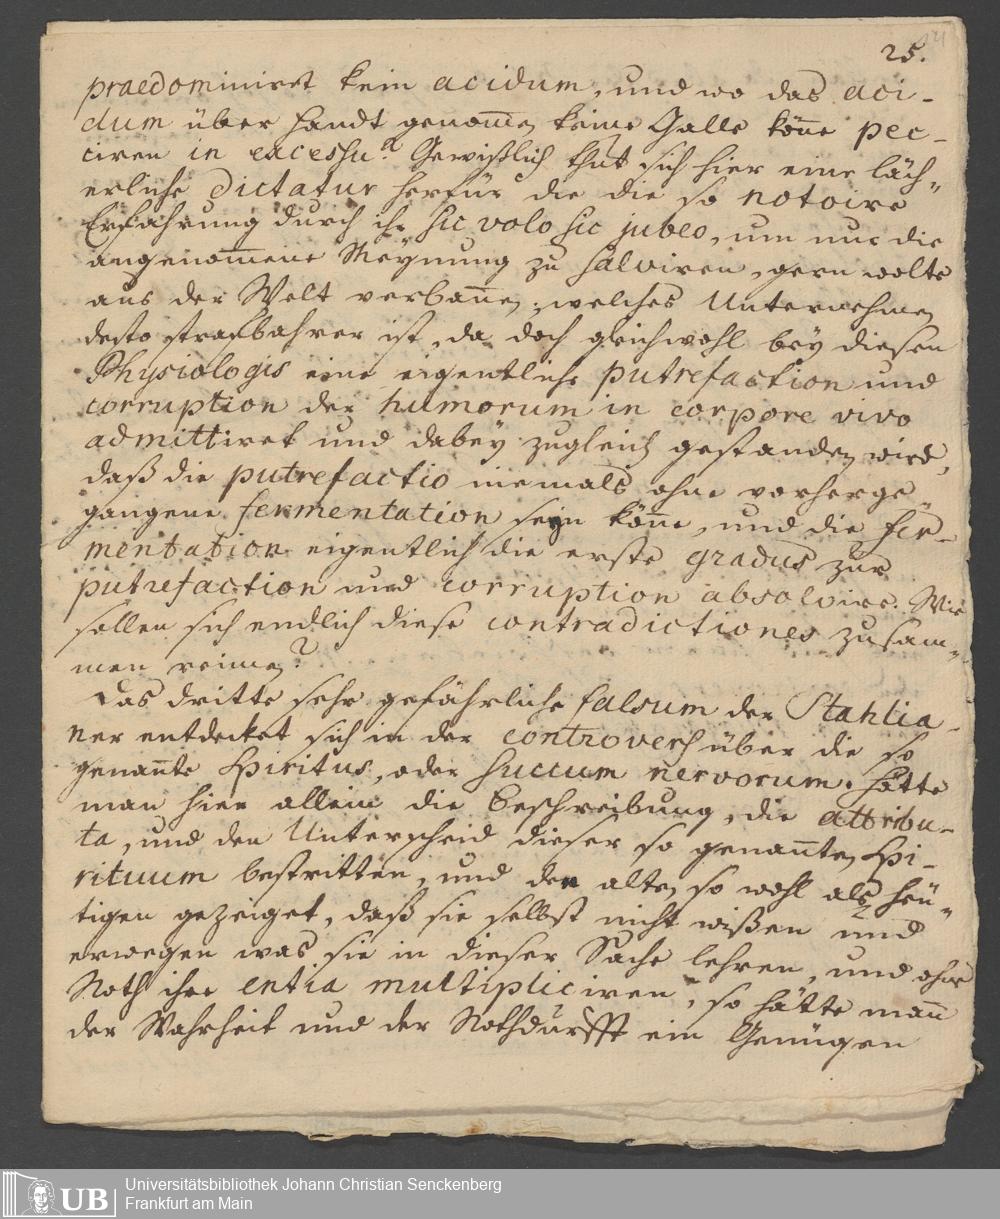 25.
praedominiret kein acidum, und wo das aci-
dum über Handt genom̅en keine Galle kön̅e pec-
ciren in excessu. Gewißlich thut sich hier eine läch-
erliche Dictatur herfür die die so notoire
Erfahrung durch ihr sic volo sic jubeo, um nur die
angenom̅ene Meynung zu salviren, gern wolte
aus der Welt verban̅en; welches Unternehmen
desto strafbahrer ist, da doch gleichwohl bey diesen
Physiologis eine eigentliche putrefaction und
corruption der humorum in corpore vivo
admittiret und dabey zugleich gestanden wird,
daß die putrefactio niemals ohne vorherge
gangene fermentation seyn kön̅e, und die fer-
mentation eigentlich die erste gradus zur
putrefaction und corruption absolvire. Wie
sollen sich endlich diese contradictiones zusam-
men reimen?
Das dritte sehr gefährliche falsum der Stahlia-
ner entdecket sich in der controvers über die so
genan̅te Spiritus, oder succum nervorum. Hätte
man hier allein die Beschreibung, die attribu-
ta, und den Unterscheid dieser so genan̅ten Spi-
rituum bestritten, und den alten so wohl als heü-
tigen gezeiget, daß sie selbst nicht wißen und
erwegen was sie in dieser Sache lehren, und ohne
Noth ihre entia multipliciren, so hätte man̅
der Wahrheit und der Nothdurfft ein Genügen
UB
Universitätsbibliothek Johann Christian Senckenberg
Frankfurt am Main